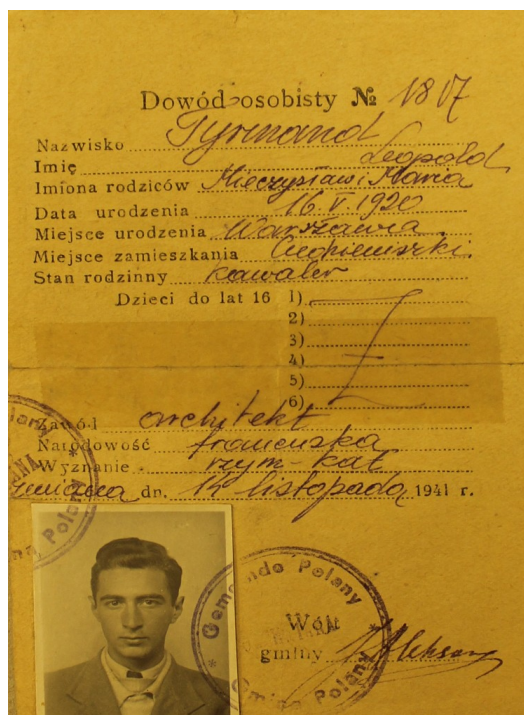 Dowód osobisty № 1817
Nazwisko Tyrmand
Imię Leopold
Imiona rodziców Mieczysław i Maria
Data urodzenia 16 V. 1920
Miejsce urodzenia Warszawa
Miejsce zamieszkania
Stan rodzinny kawaler
Dzieci do lat 16 1)
2)
3)
4)
5)
6)
Zawód architekt
Narodowość francuska
Wyznanie rzym-kat
dn. 14 listopada 1941 r.
Gemeinde Polany
Wójt
gminy
Gmina Polany